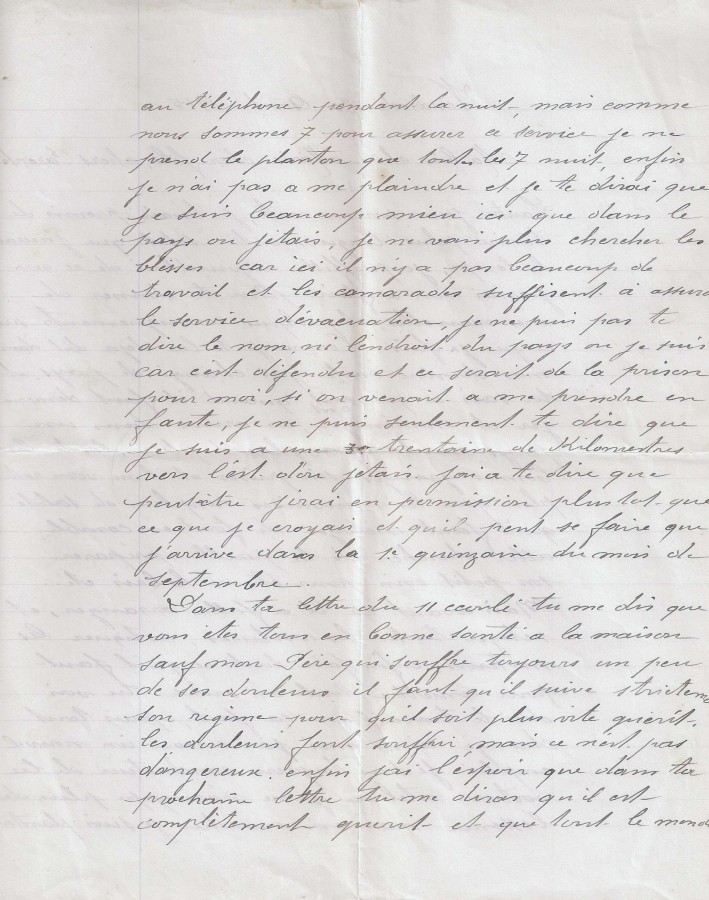 au téléphone pendant la nuit, mais comme
nous sommes 7 pour assurer ce service je ne
prend le planton que toutes les 7 nuit, enfin
je n'ai pas a me plaindre et je te dirai que
je suis beaucoup mieu ici que dans le
pays ou jetais, je ne vais plus chercher les
blesses car ici il n'y a pas beaucoup de
travail et les camarades suffisent à assure
le service dévacuation, je ne puis pas te
dire le nom, ni l'endroit du pays ou je suis
car c'est défendu et ce serait de la prison
pour moi, si on venait a me prendre en
faute, je ne puis seulement te dire que
je suis a une trentaine de Kilomestres
vers l'est d'ou jetais jai a te dire que
peut-être jirai en permission plus tot que
ce que je croyais et qu'il peut se faire que
j'arrive dans la 1e quinzaine du mois de
septembre.
Dans ta lettre du 11 ecoulé tu me dis que
vous êtes tous en bonne santé a la maison
sauf mon Père qui souffre toujours un peu
de ses douleurs il faut qu'il suive stricteme
son régime pour qu'il soit plus vite guerit,
les douleurs font souffrir mais ce n'est pas
dangereux. enfin jai l'espoir que dans ta
prochaine lettre tu me diras qu'il est
complètement guerit et que tout le monde